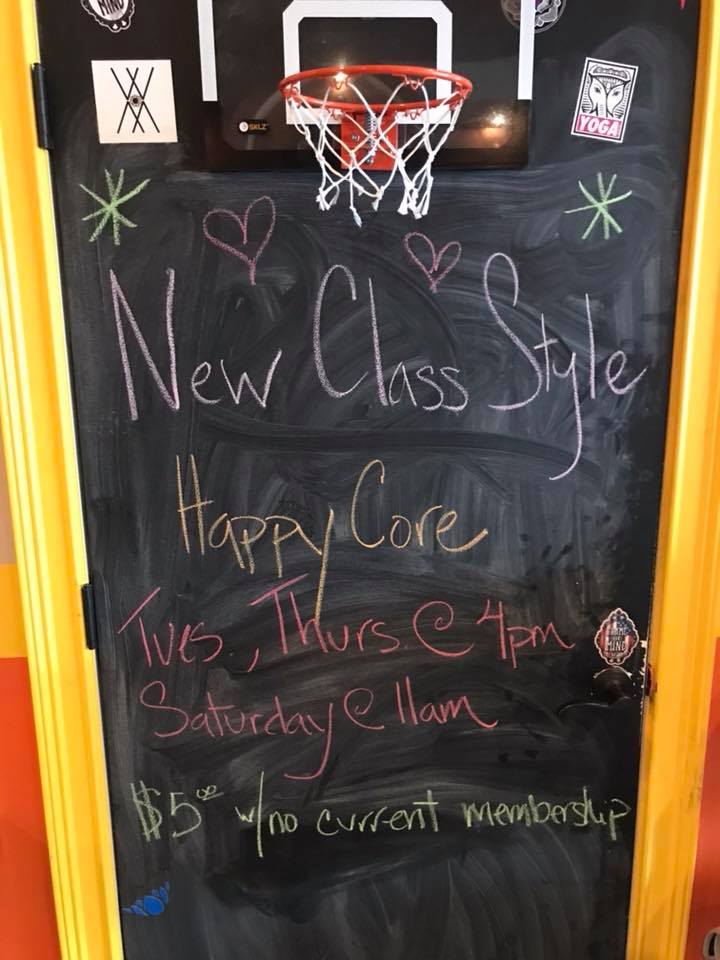 MIND
SKLZ
YOGA
New Class Style
Happy Core
Tues., Thurs. @ 4pm
MIND
Saturday @ 11am
$5⁰⁰ w/no current membership